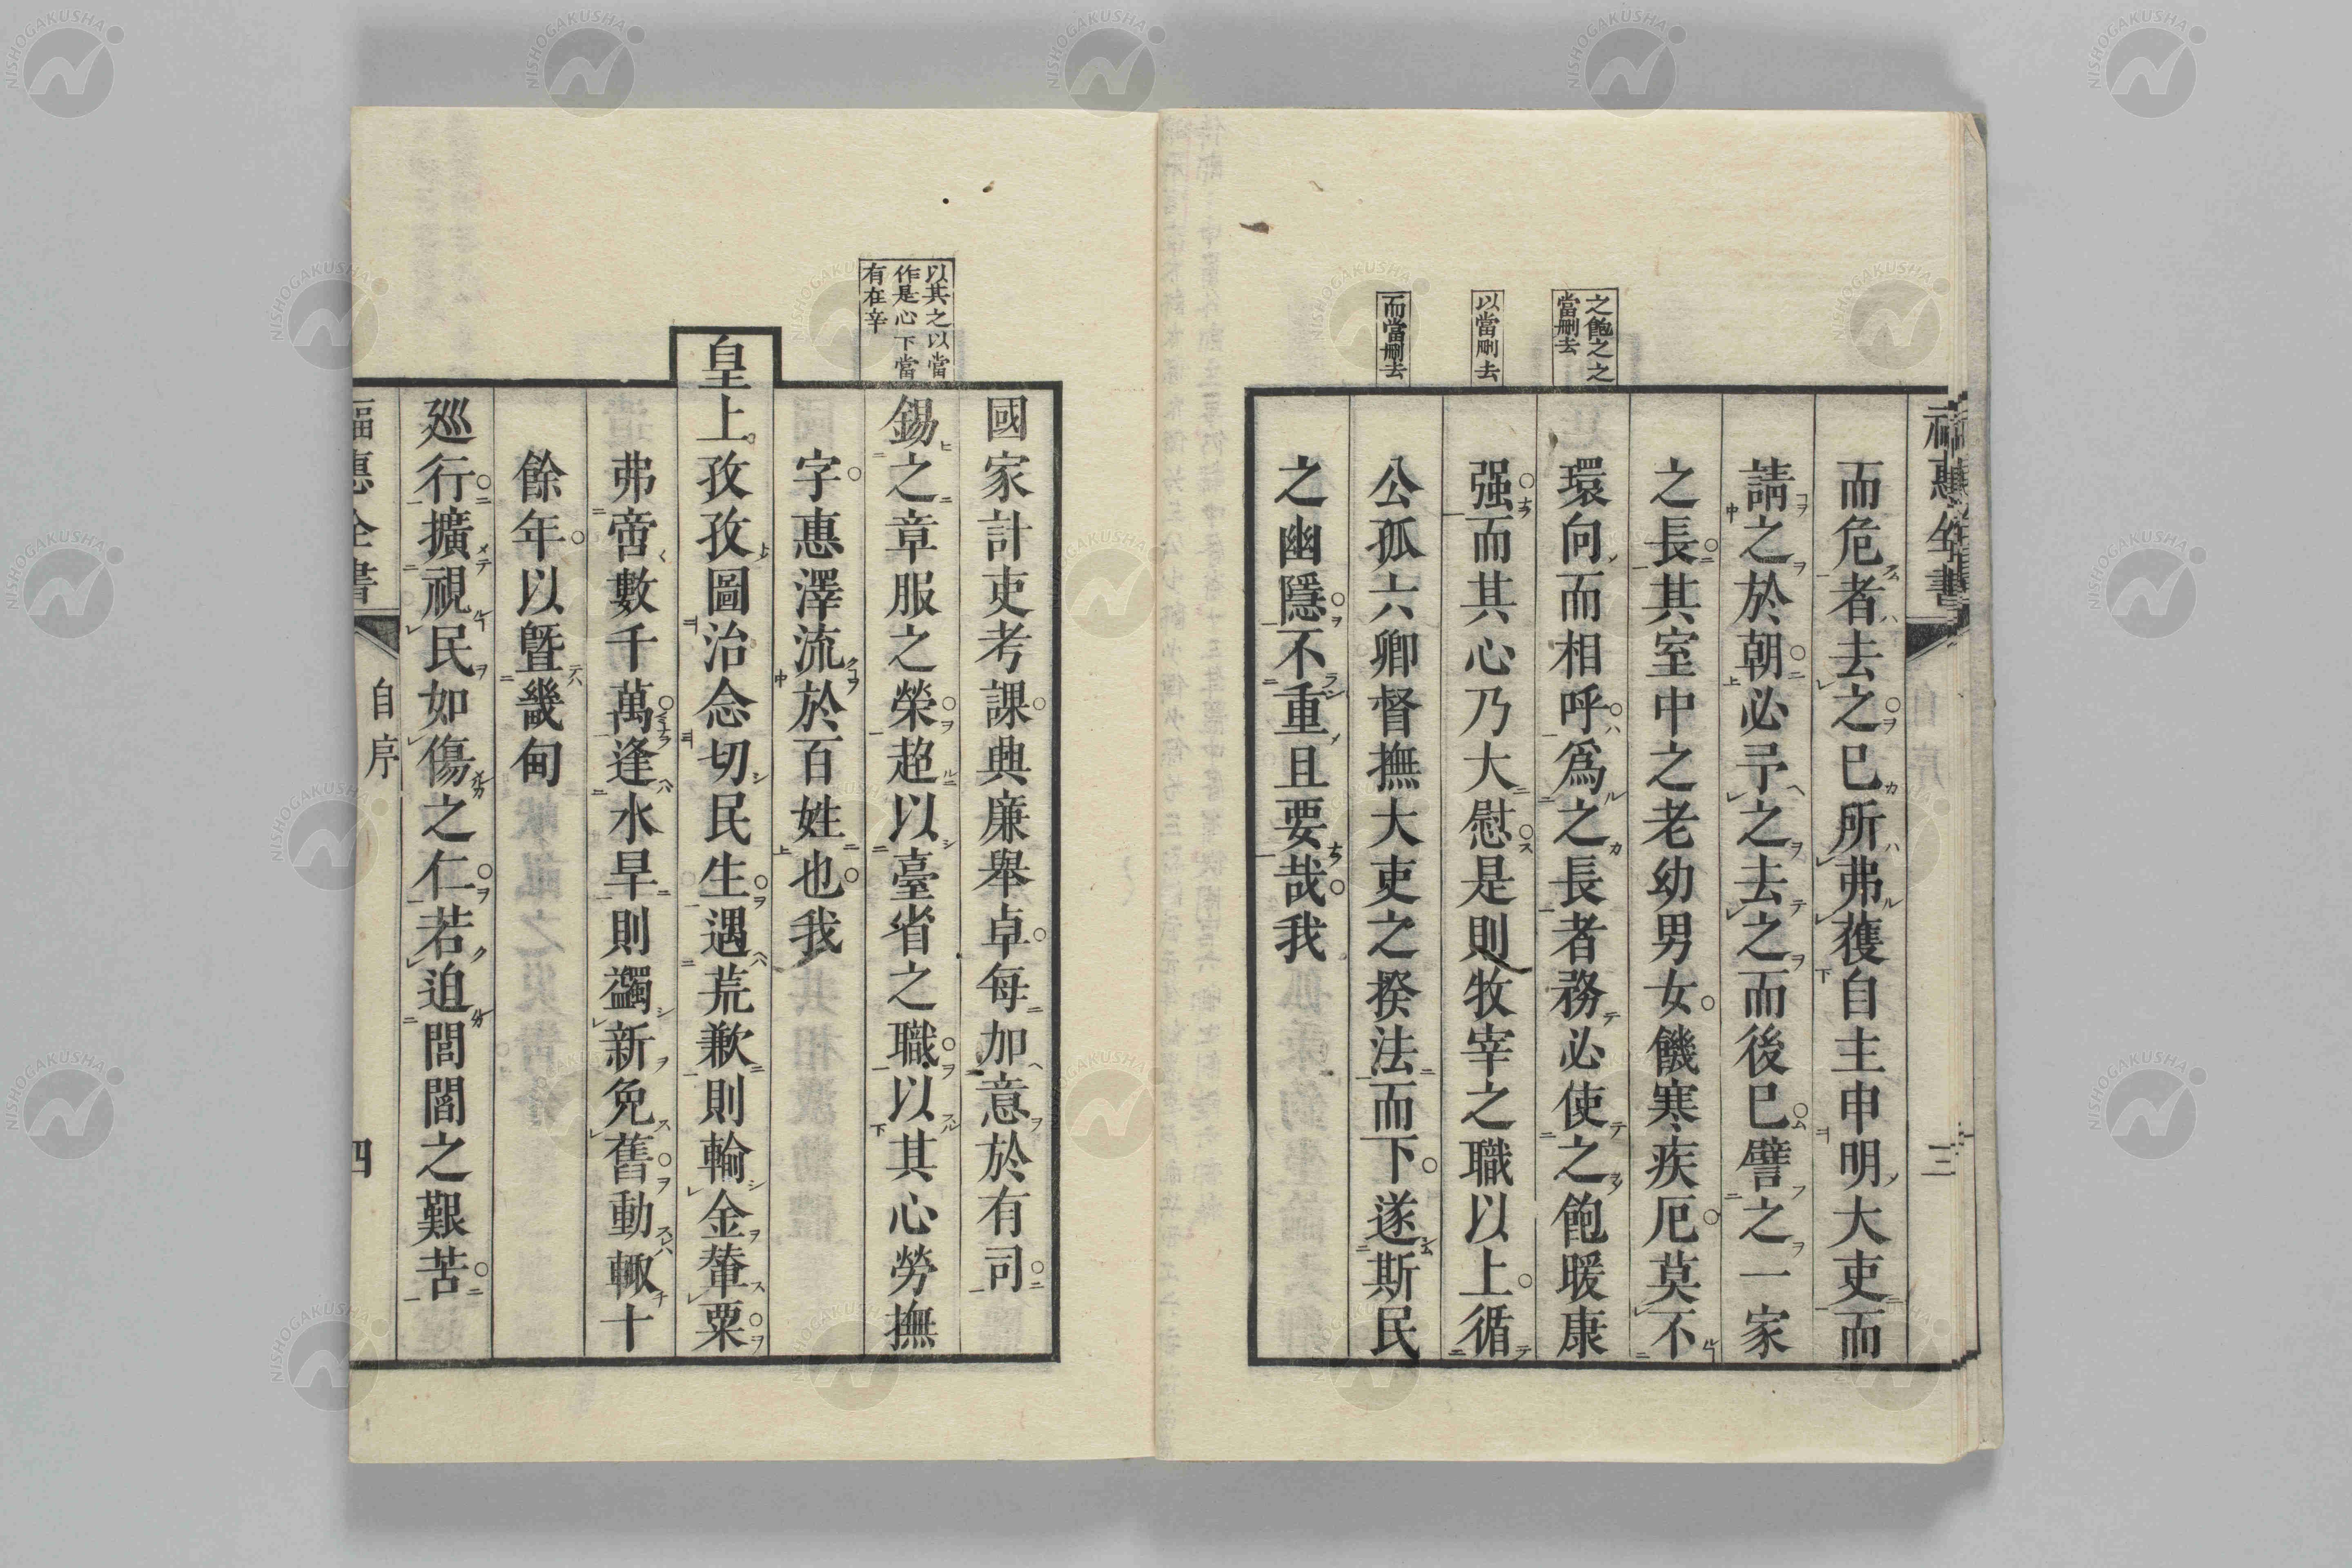 福惠全書
自序
三
之飽之之
當刪去
以當刪去
而當刪去
而危者去之已所弗獲自主申明大吏而
請之於朝必予之去之而後已譬之一家
之長其室中之老幼男女饑寒疾厄莫不
環向而相呼爲之長者務必使之飽暖康
强而其心乃大慰是則牧宰之職以上循
公孤六卿督撫大吏之揆法而下遂斯民
之幽隱不重且要哉我
以其之以當
作是心下當
有在辛
國家計吏考課典廉舉卓每加意於有司
錫之章服之榮超以臺省之職以其心勞撫
字惠澤流於百姓也我
皇上孜孜圖治念切民生遇荒歉則輸金輦粟
弗啻數千萬逢水旱則蠲新免舊動輒十
餘年以曁畿甸
巡行擴視民如傷之仁若迫閭閻之艱苦
福惠全書
自序
四
NISHOGAKUSHA